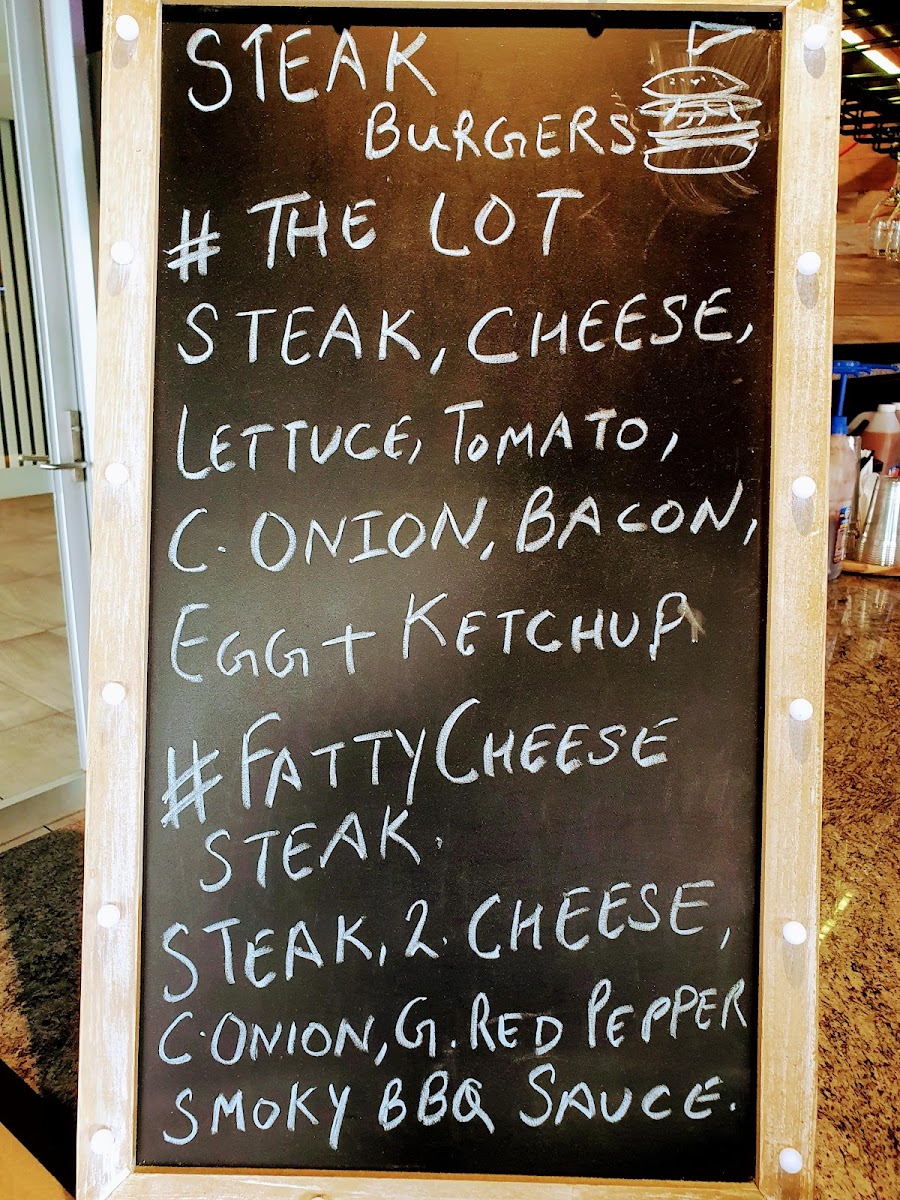 STEAK
BURGERS
# THE LOT
STEAK, CHEESE,
LETTUCE, TOMATO,
C. ONION, BACON,
EGG + KETCHUP
# FATTY CHEESE
STEAK.
STEAK, 2. CHEESE,
C. ONION, G. RED PEPPER
SMOKY BBQ SAUCE.